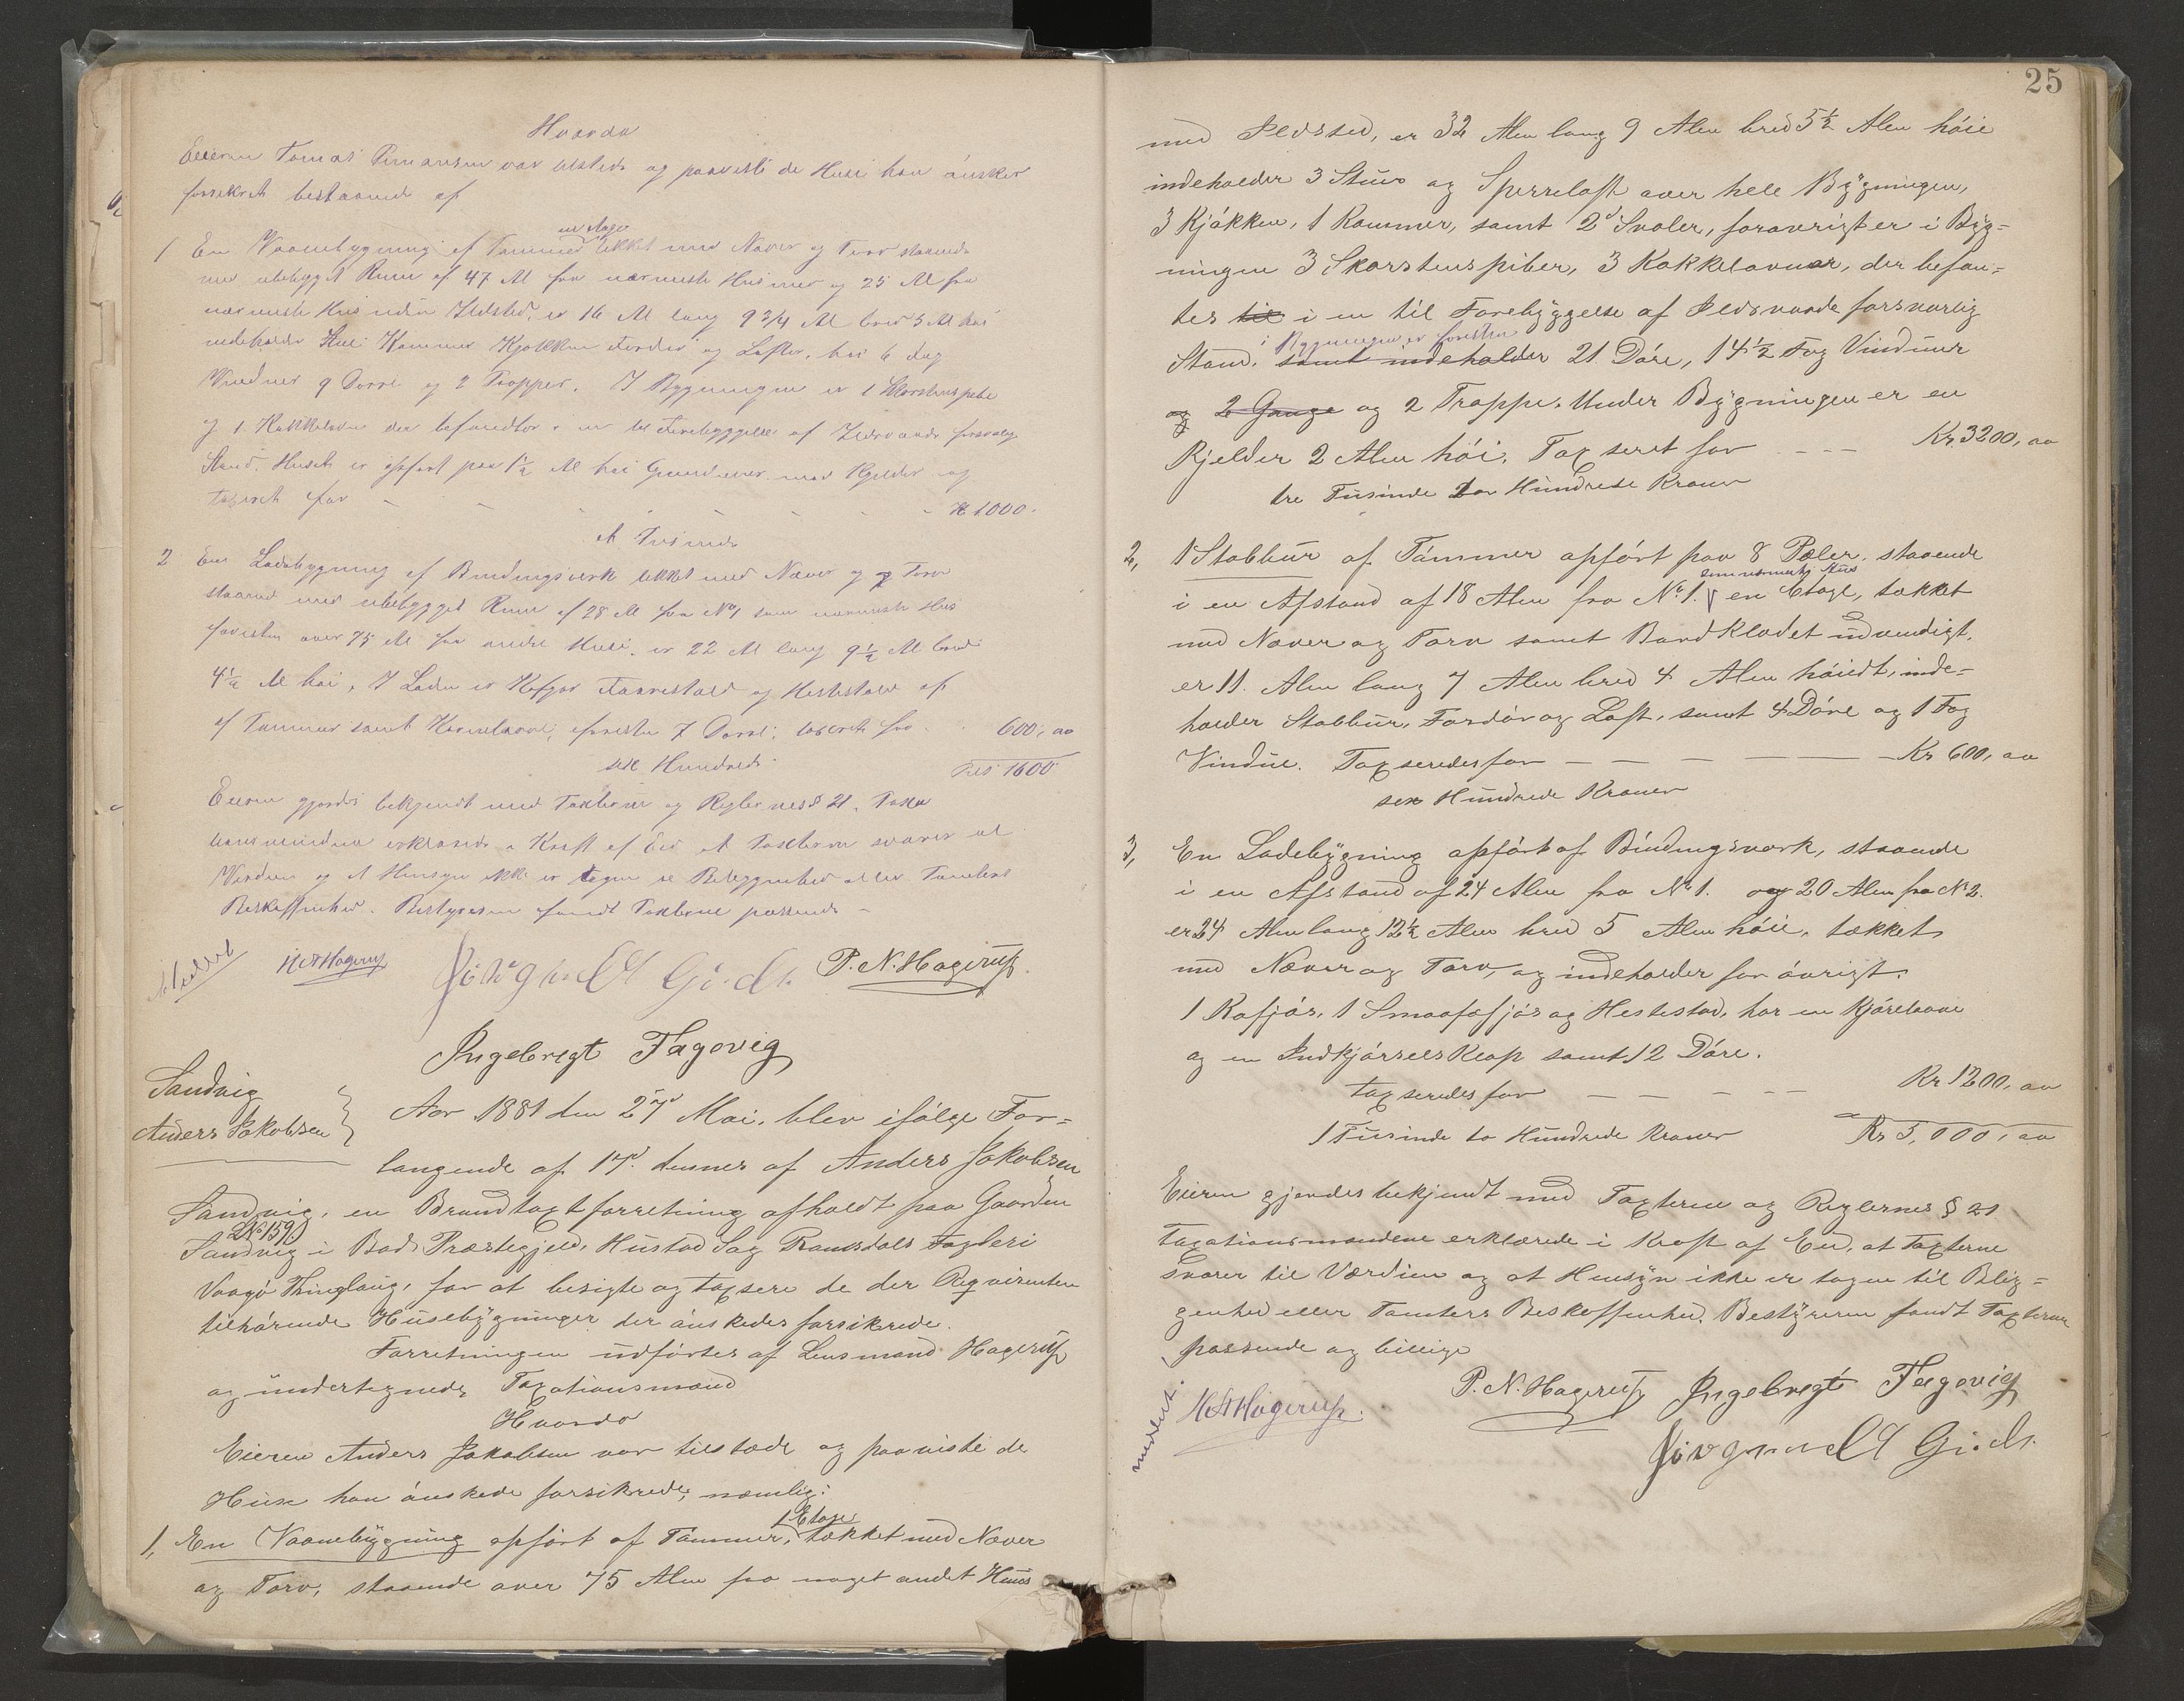 Hvorda
Eieren Tomas var tilstede og paaviste de Huse han ønsker
forsikret bestaaende af
en Etage
1 En Vaanebygning af Tømmer tækket med Næver og Torv staaende
med ubebygget Rum af 47 Al fra nærmeste Hus med og 25 Al fra
nærmeste Hus uden Ildsted, er 16 Al lang 9 3/4 Al bred 5 Al høi
indeholder Stue Kammer Kjøkken Fordør og Lofter, har 6 Fag
Vinduer 9 Dørre og 2 Trapper. I Bygningen er 1 Skorstenspibe
og 1 Kakkelovn der befandtes i en til Forebyggelse af Ildsvaade forsvarlig
Stand. Huset er opført paa 1½ Al høi Grundmur med Kjelder og
taxeret for - - - - - - - Kr 1000.
et Tusinde
2 En Ladebygning af Bindingsverk tækket med Næver og Torv
staaende med ubebygget Rum af 28 Al fra No 1 som nærmeste Hus
forresten over 75 Al fra andre Huse. er 22 Al lang 9½ Al bred
4½ Al høi, I Laden er Kofjøs Faarestald og Hestestald af
af Tømmer samt Kornlaave, forresten 7 Dørre, taxeret for - 600, 00
sex Hundrede
1600
Eieren gjordes bekjendt med Taxterne og Reglernes § 21. Taxa
tionsmændene erklærede i Kraft af Eed at Taxterne svarer til
Værdien og at Hensyn ikke er tagen til Beliggenhed eller Tomters
Beskaffenhed. Bestyreren fandt Taxterne passende -
P. N. Hagerup
Ingebregt Fagervig
Sandvig
Anders Jakobsen
Aar 1881 den 27d Mai, blev ifølge For=
langende af 17d. dennes af Anders Jakobsen
Sandvig, en Brandtaxtforretning afholdt paa Gaarden
LNo 159
Sandvig i Bods Præstegjeld, Hustad Sog Romsdals Fogderi
Vaagø Thinglaug, for at besigte og taxsere de der Reqvirenten
tilhørende Husebygninger der ønskedes forsikrede.
Forretningen udførtes af Lensmand Hagerup
og undertegnede Taxationsmænd
Hvorda
Eieren Anders Jakobsen var tilstede og paaviste de
Huse han ønskede forsikrede, nemlig:
1 Etage
1, En Vaanebygning opført af Tømmer, tækket med Næver
og Torv, staaende over 75 Alen fra noget andet Huus
25
med Ildsted, er 32 Alen lang 9 Alen bred 5½ Alen høie
indeholder 3 Stuer og Sperreloft over hele Bygningen,
3 Kjøkken, 1 Kammer, samt 2d Svaler, foravrigt er i Byg=
ningen 3 Skorstenspiber, 3 Kakkelovner, der befan=
tes til i en til Forebyggelse af Ildsvaade forsvarlig
i Bygningen er forresten
Stand. samt indeholder 21 Døre, 14½ Fag Vinduer
og 2 Gange og 2 Trappe. Under Bygningen er en
Kjelder 2 Alen høi. Taxseret for - - - Kr 3200, 00
tre Tusinde to Hundrede Kroner
2, 1 Stabbur af Tømmer opført paa 8 Pæler, staaende
som nærmeste Hus
i en Afstand af 18 Alen fra No 1. en Etage, tækket
med Næver og Torv samt Bordklædet udvendigt.
er 11. Alen lang 7 Alen bred 4 Alen høiedt, inde=
holder Stabbur, Fordør og Loft, samt 4 Døre og 1 Fag
Vindue. Taxseredes for - - - - - Kr 600, 00
sex Hundrede Kroner
3, En Ladebygning opført af Bindingsværk, staaende
i en Afstand af 24 Alen fra No 1. og 20 Alen fra No 2.
er 24 Alen lang 12½ Alen bred 5 Alen høie, tækket
med Næver og Torv, og indeholder for øvrigt.
1 Kofjøs, 1 Smaafæfjøs og Hestestal, har en Kjørelaave
og en Indkjørsels Klop samt 12 Døre.
taxseredes for - - - - Kr 1200, 00
1 Tusinde to Hundrede Kroner Kr 5,000, 00
Eieren gjordes bekjendt med Taxterne og Reglernes § 21
Taxationsmændene erklærede i Kraft af Eed, at Taxterne
svarer til Værdien og at Hensyn ikke er tagen til Belig=
genhed eller Tomters Beskaffenhed. Bestyreren fandt Taxterne
passende og billige
P. N. Hagerup Ingebregt Fagervig